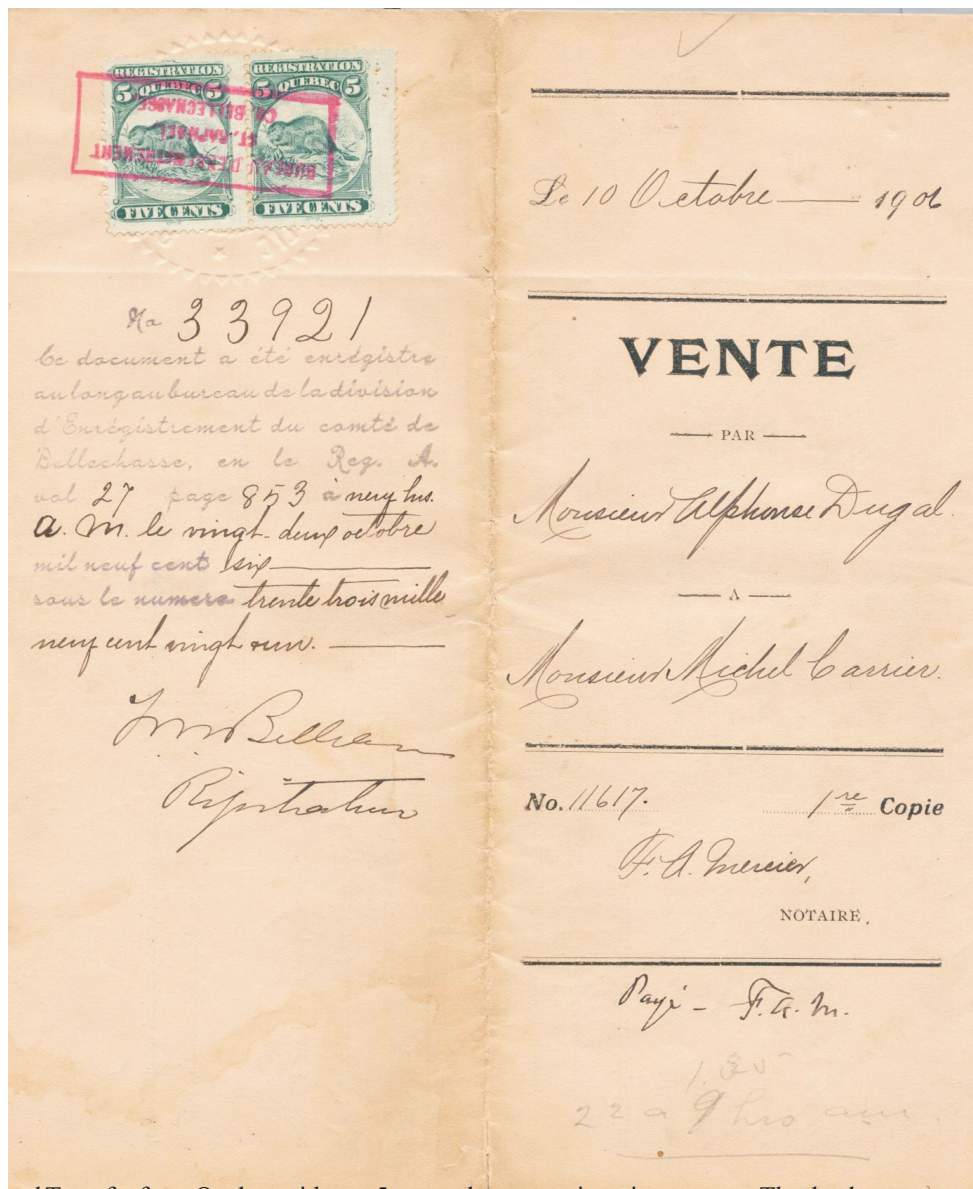 REGISTRATION REGISTRATION
5 QUEBEC 5 5 QUEBEC 5
FIVE CENTS FIVE CENTS
BUREAU D'ENREGISTREMENT
ST. RAPHAEL
CO. BELLECHASSE
No 33921
Ce document a été enrégistre
au long au bureau de la division
d'Enrégistrement du comté de
Bellechasse, en le Reg. A.
vol 27 page 853 à neuf hrs.
A. M. le vingt-deux octobre
mil neuf cent six
sous le numero trente trois mille
neuf cent vingt et un.
Le 10 Octobre 1906
VENTE
PAR
Monsieur Alphonse Dugal.
A
Monsieur Michel Carrier.
No. 11617. 1re Copie
F. A. Mercier,
NOTAIRE.
Payé - F. A. M.
22 a 9 hrs am